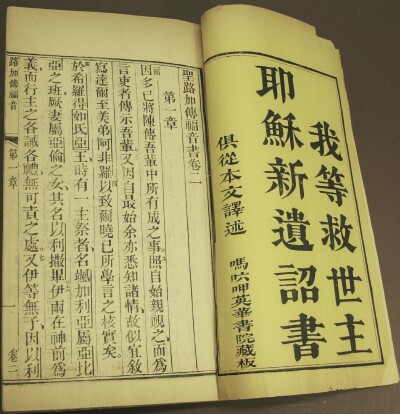 我等救世主
耶穌新遺詔書
俱從本文譯述
英華書院藏板
聖路加傳福音書卷三
第一章
因多已將陳傳吾輩中所有成之事照自始親視之而為
言吏者傳示吾輩又因自最始余亦悉知諸情故似宜敘
寫達爾至美弟阿非羅以致爾曉已所學言之核實矣
於希羅得如氏亞王時有一主祭者名颯加利亞屬亞比
亞之班厥妻屬亞倫之女其名以利撒畢伊兩在神前為
義而行主之各誡各禮無可責之處又伊等無子因以利
路加傳福音 第一章 一 卷三